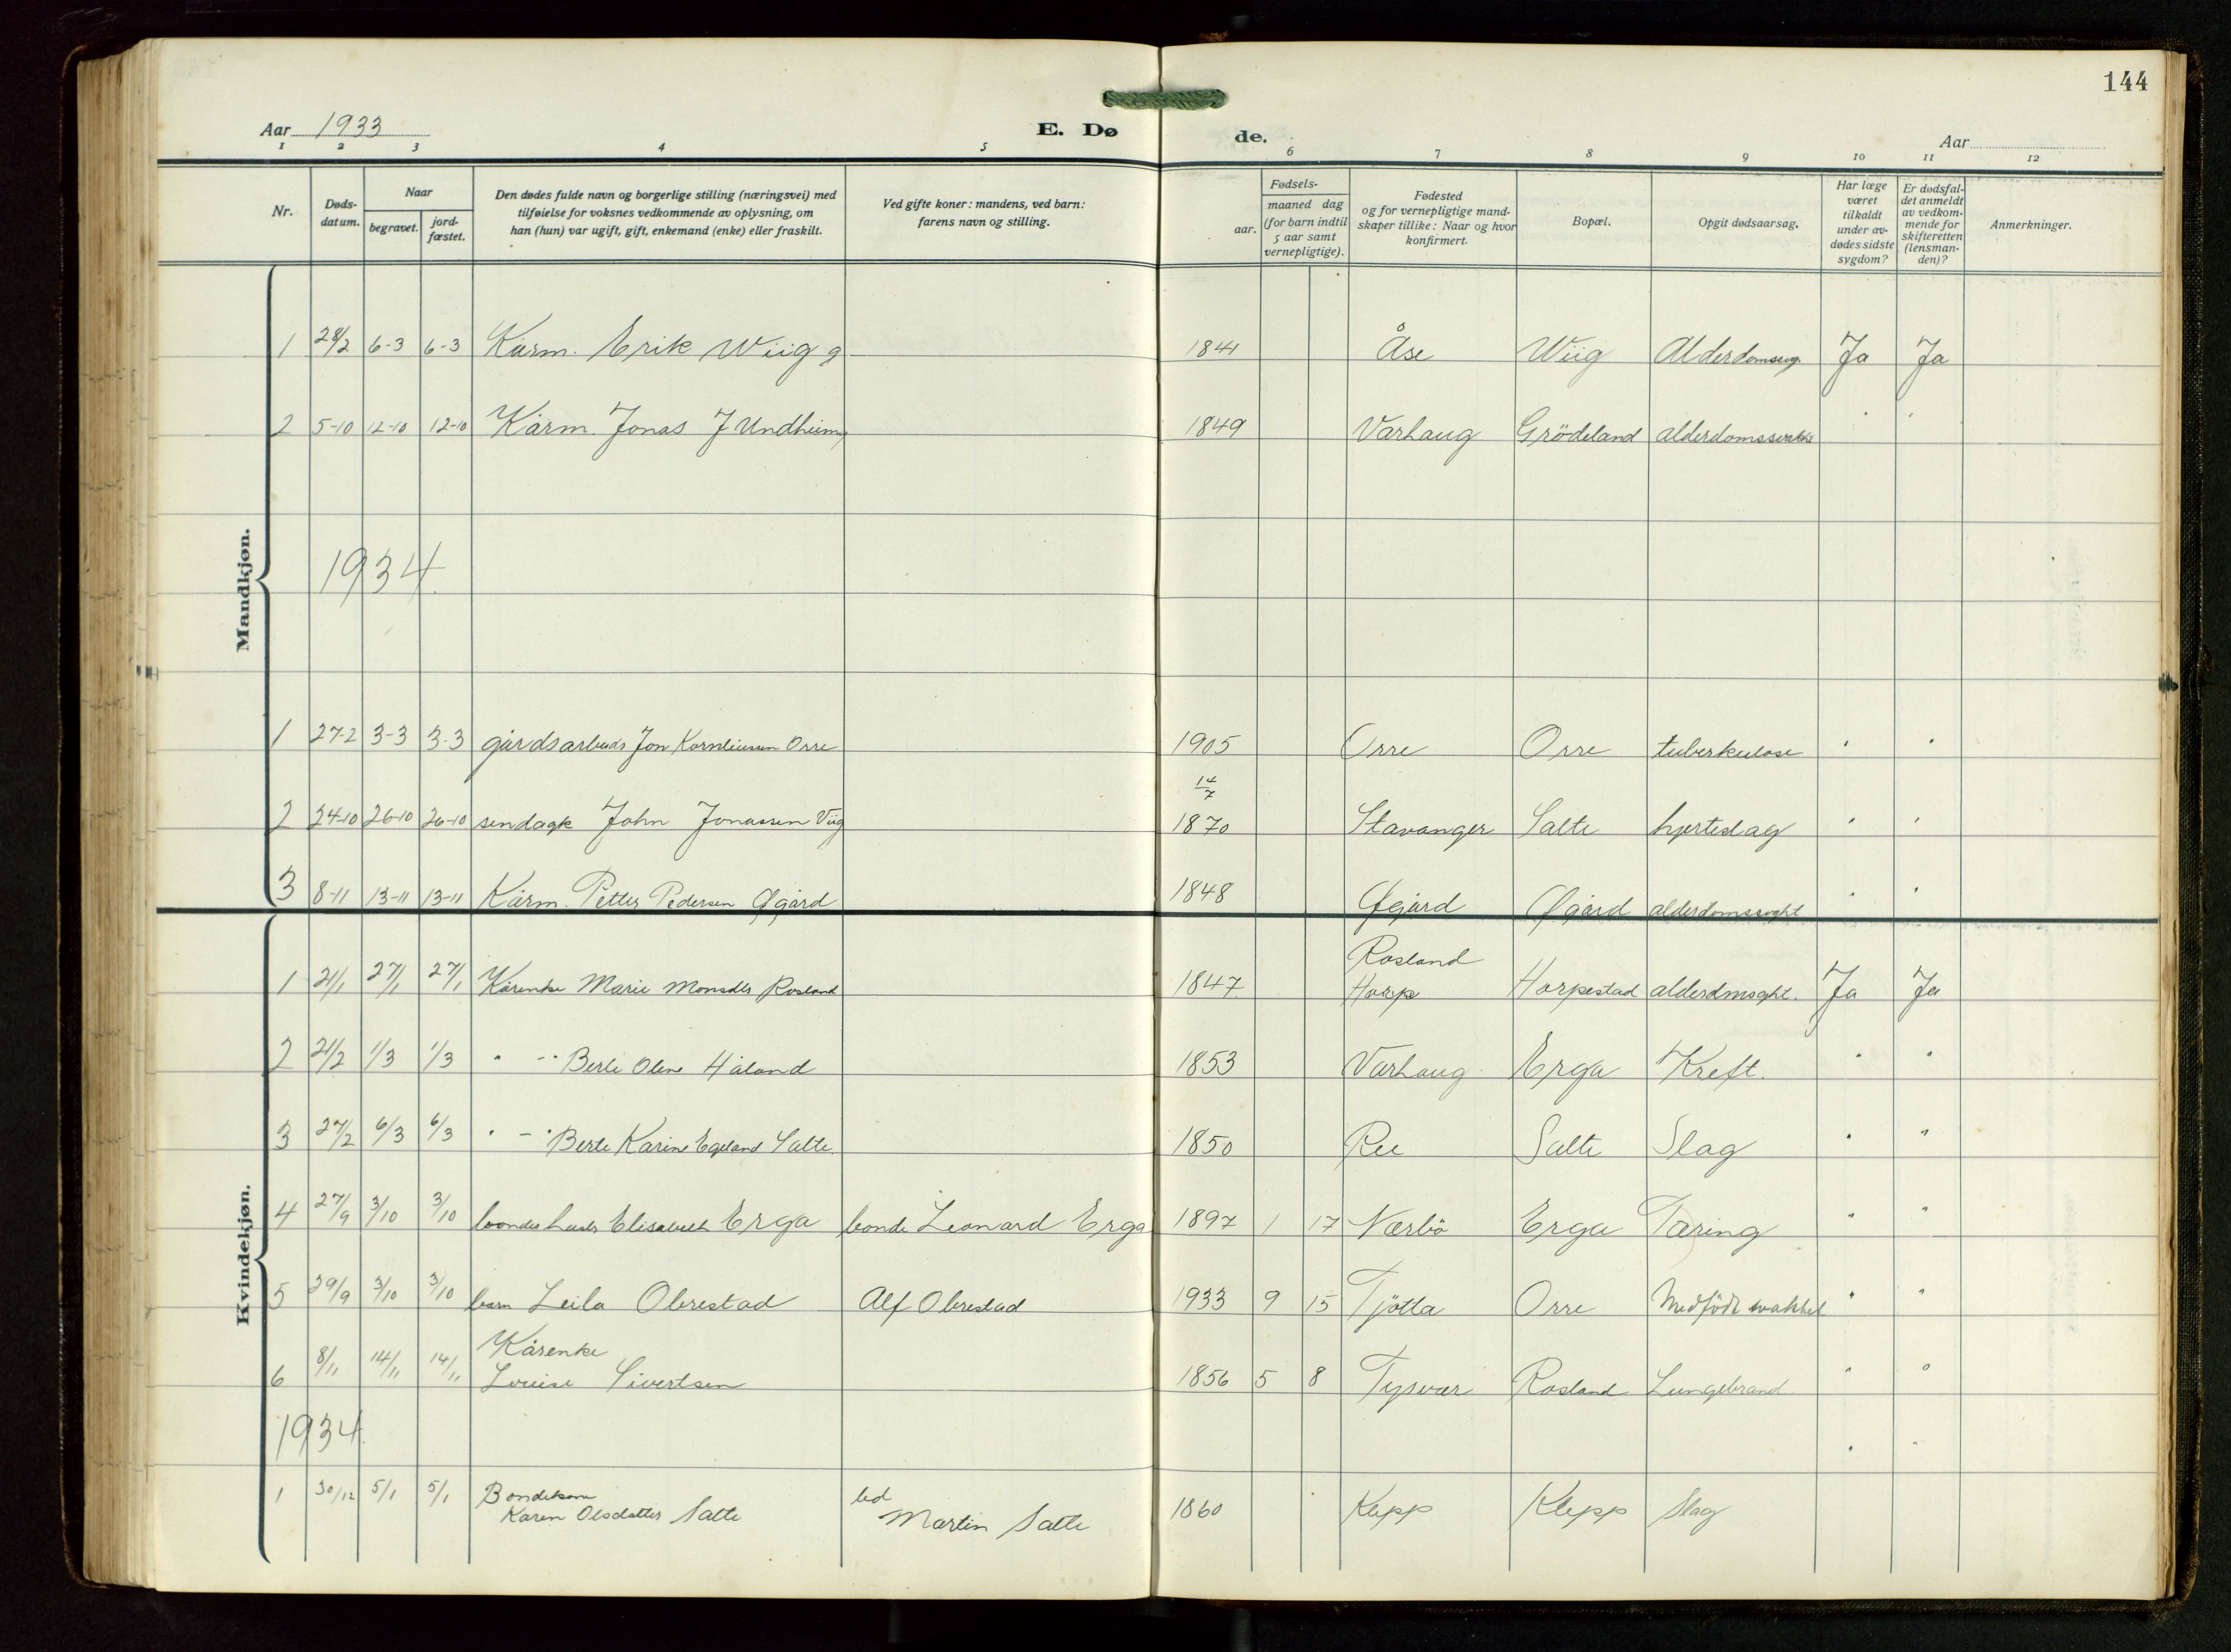 144
Aar 1933
E. Dø de.
Aar
1 2 3 4 5 6 7 8 9 10 11 12
Nr.
Døds-
datum.
Naar
begravet.
jord-
fæstet.
Den dødes fulde navn og borgerlige stilling (næringsvei) med
tilføielse for voksnes vedkommende av oplysning, om
han (hun) var ugift, gift, enkemand (enke) eller fraskilt.
Ved gifte koner: mandens, ved barn:
farens navn og stilling.
aar.
Fødsels-
maaned dag
(for barn indtil
5 aar samt
vernepligtige).
Fødested
og for vernepligtige mand-
skaper tillike: Naar og hvor
konfirmert.
Bopæl.
Opgit dødsaarsag.
Har læge
været
tilkaldt
under av-
dødes sidste
sygdom?
Er dødsfal-
det anmeldt
av vedkom-
mende for
skifteretten
(lensman-
den)?
Anmerkninger.
Mandkjøn.
1 28/2 6-3 6-3 Kårm. Erik Wiig g 1841 Åse Wiig Ja Ja
2 5-10 12-10 12-10 Kårm. Jonas J Undheim 1849 Varhaug Grödeland
1934.
1 27-2 3-3 3-3 Jon Kornliussen Orre 1905 Orre Orre tuberkulose " "
14/7
2 24-10 26-10 26-10 John Jonassen Viig 1870 Stavanger Salte hjerteslag " "
3 8-11 13-11 13-11 Kårm. Petter Pedersen Øgård 1848 Øgård Øgård alderdomssoght " "
Kvindekjøn.
Rosland
1 21/1 27/1 27/1 Kårenke Marie Monsdtr Rosland 1847 Horp Horpestad alderdmsoght. Ja Ja
2 21/2 1/3 1/3 " - " Berte Oline Håland 1853 Varhaug Erga Kreft. " "
3 27/2 6/3 6/3 " - " Berte Karine Egeland Salte. 1850 Ree Salte Slag " "
4 27/9 3/10 3/10 Elisabeth Erga bonde Leonard Erga 1897 1 17 Nærbö Erga Tæring " "
5 29/9 3/10 3/10 barn Leila Obrestad Alf Obrestad 1933 9 15 Tjötta Orre Medfödt svakhet " "
Kårenke
6 8/11 14/11 14/11 Louise Sivertsen 1856 5 8 Tysvær Rosland Lungebrand. " "
1934.
1 30/12 5/1 5/1 Bondekone
Karen Olsdatter Salte Martin Salte 1860 Klepp Klepp Slag